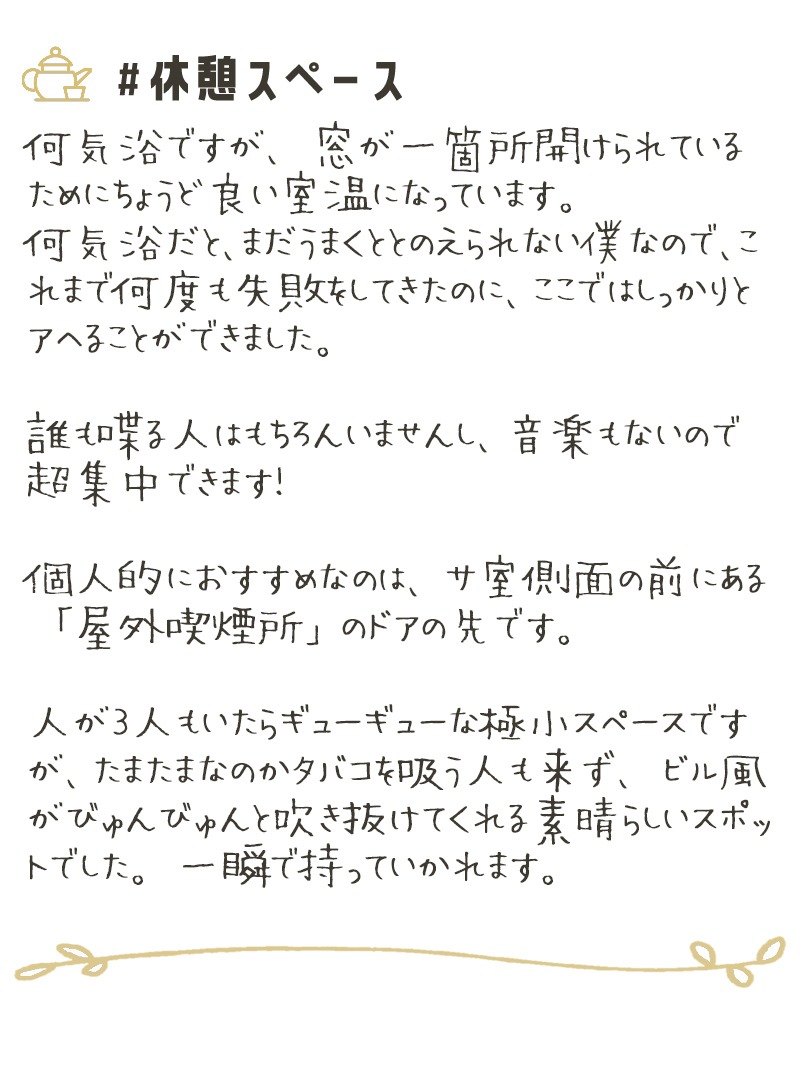 #休憩スペース
何気浴ですが、窓が一箇所開けられている
ためにちょうど良い室温になっています。
何気浴だと、まだうまくととのえられない僕なので、こ
れまで何度も失敗をしてきたのに、ここではしっかりと
アヘることができました。
誰も喋る人はもちろんいませんし、音楽もないので
超集中できます!
個人的におすすめなのは、サ室側面の前にある
「屋外喫煙所」のドアの先です。
人が3人もいたらギューギューな極小スペースです
が、たまたまなのかタバコを吸う人も来ず、ビル風
がびゅんびゅんと吹き抜けてくれる素晴らしいスポッ
トでした。 一瞬で持っていかれます。